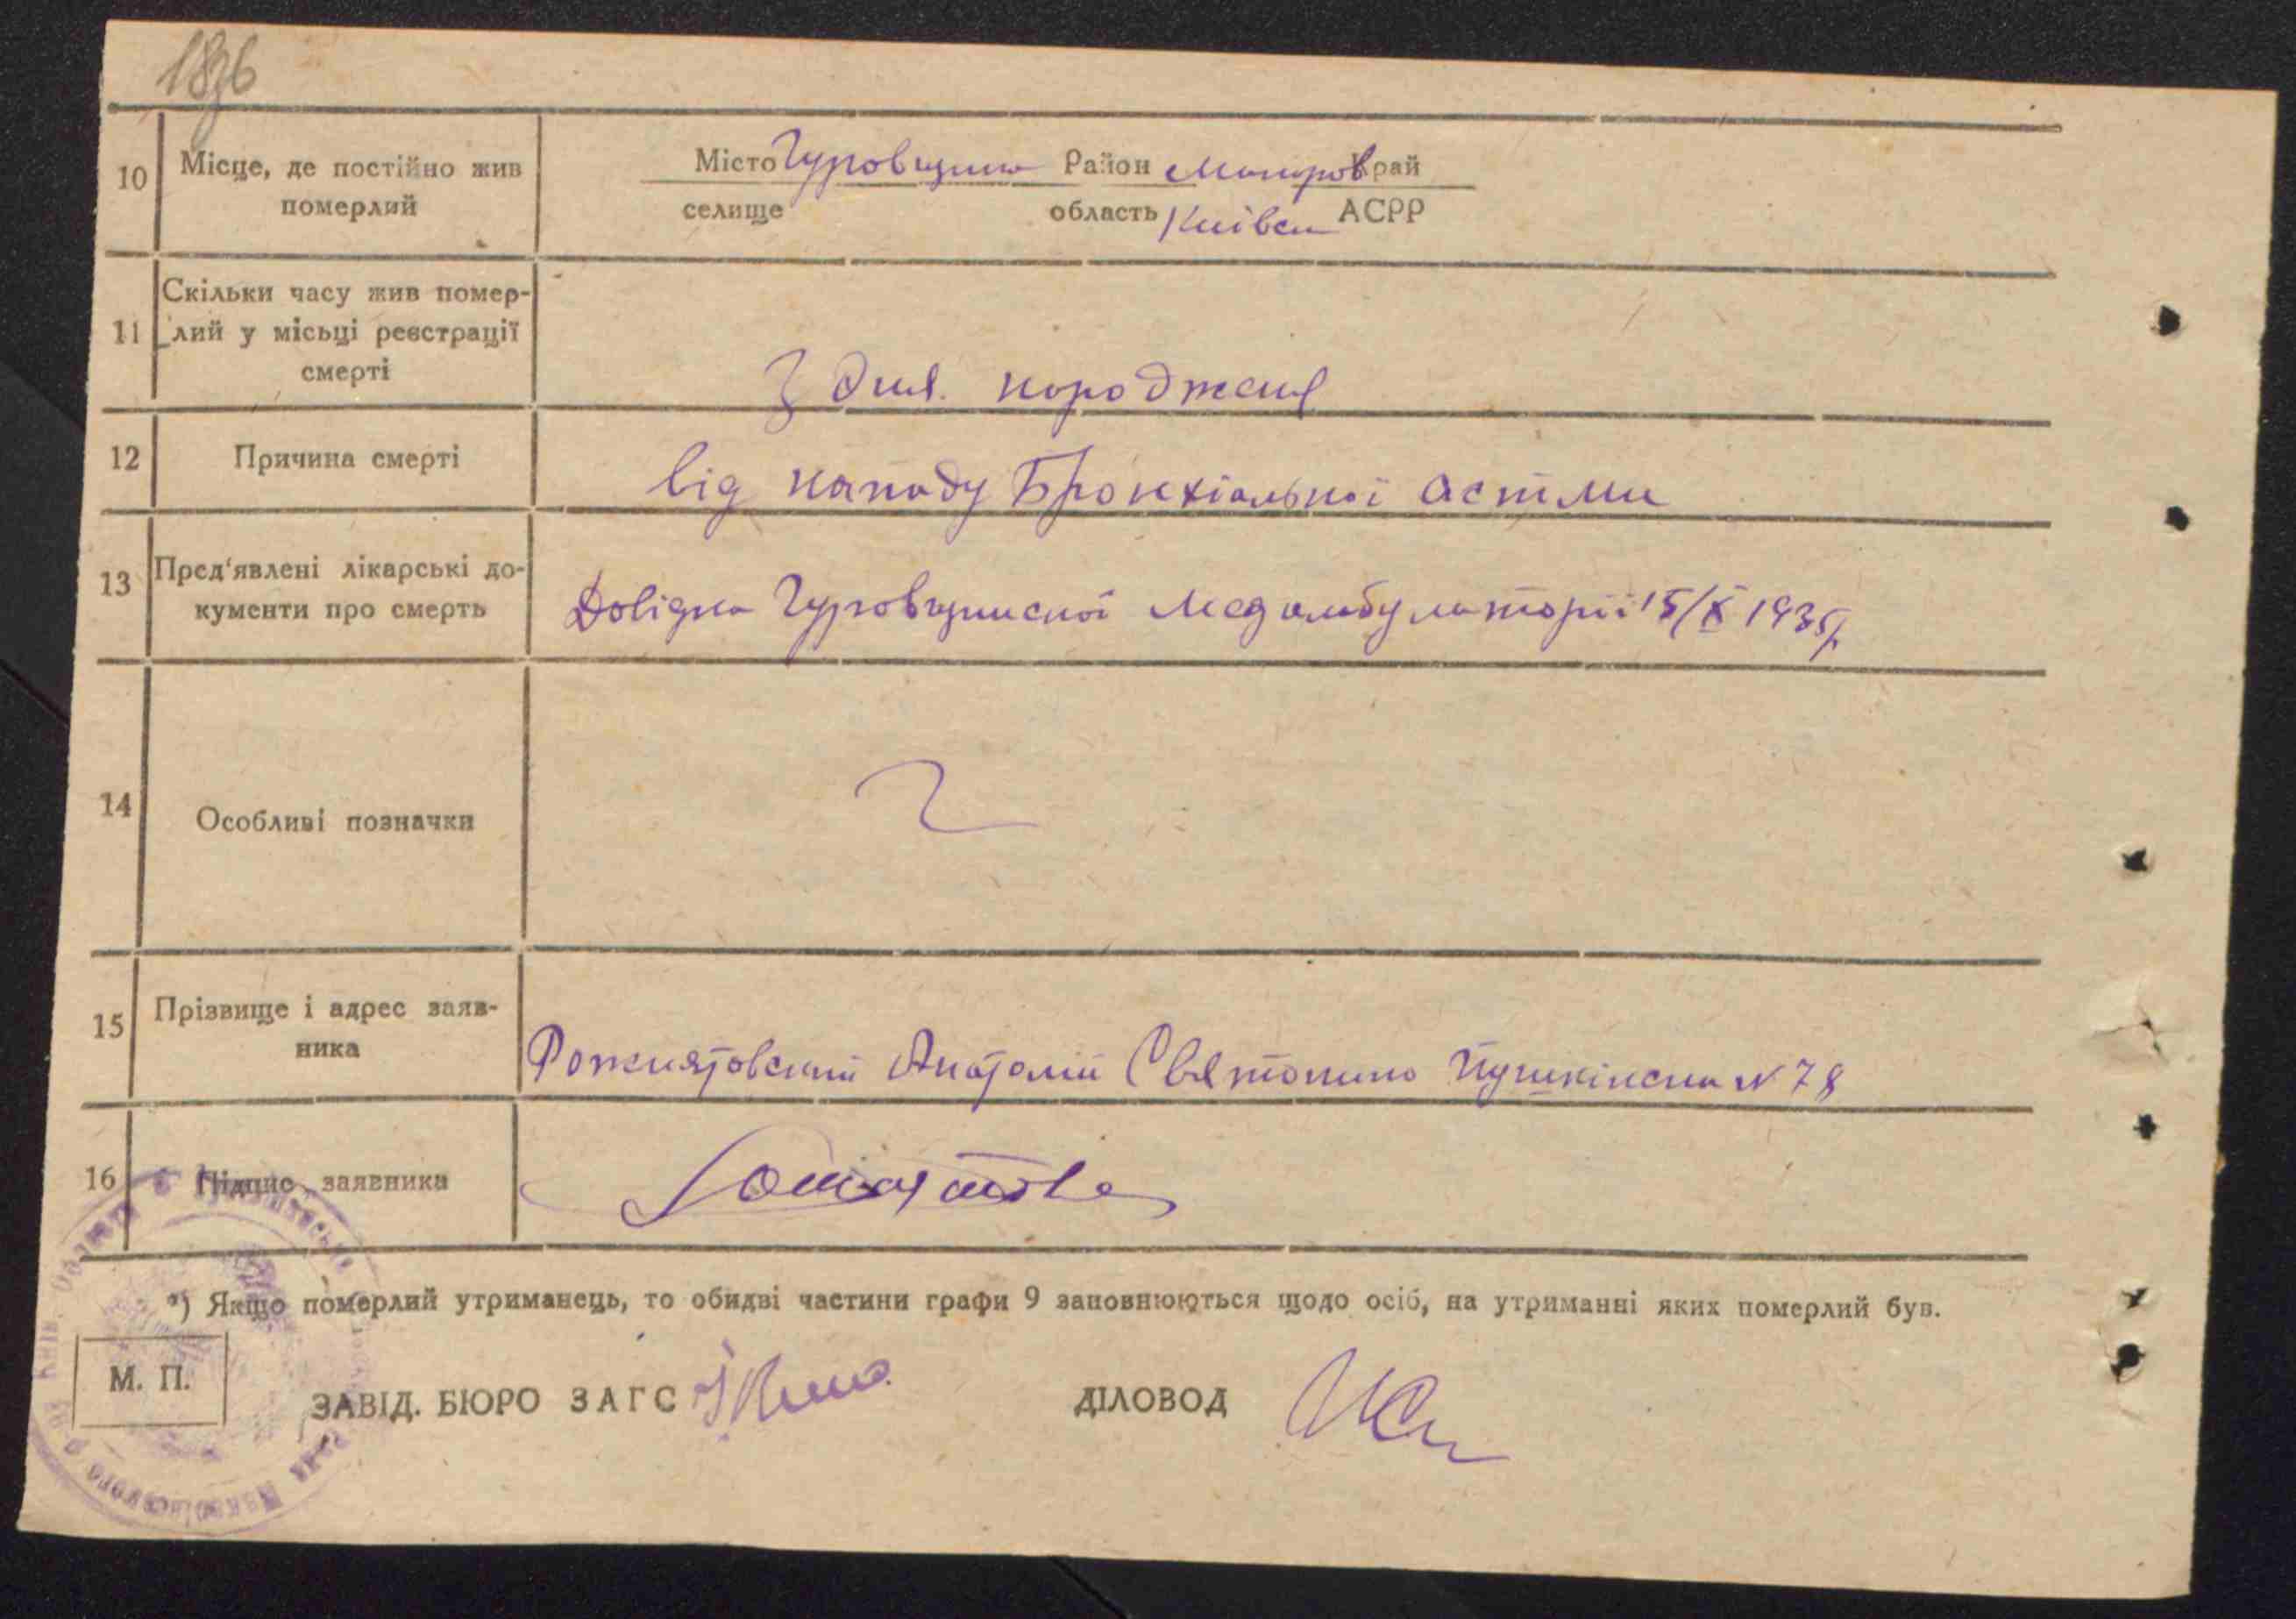 1836
10 Місце, де постійно жив померлий
Місто Гуровщина Район Макаров Край
селище область Київськ АСРР
11 Скільки часу жив помер-
лий у місьці реєстрації
смерті
З дня. народженя
12 Причина смерті
від нападу Бронхіальної астми
13 Пред'явлені лікарські до-
кументи про смерть
Довідка Гуровщинської Медамбулаторії 15/X 1935р
14 Особливі позначки
15 Прізвище і адрес заяв-
ника
Рожнятовский Анатолій Святошино Пушкінська N 78
16 Підпис заявника
*) Якщо померлий утриманець, то обидві частини графи 9 заповнюються щодо осіб, на утриманні яких померлий був.
М. П.
ЗАВІД. БЮРО ЗАГС
ДІЛОВОД